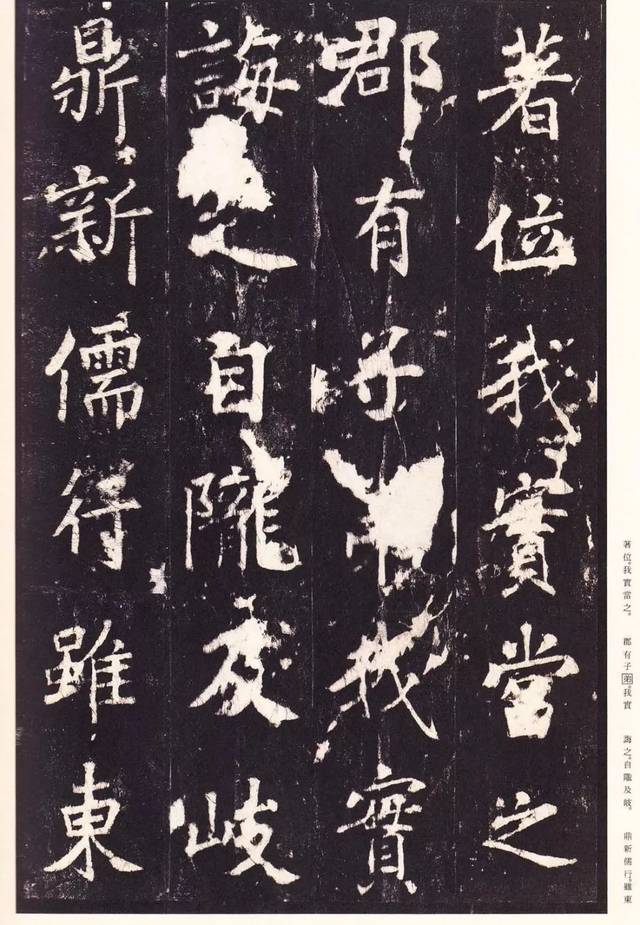 著位我實當之
郡有子我實
誨之自隴及岐
鼎新儒行雖東
著位。我實當之。　郡有子弟我實　誨之。自隴及岐。　鼎新儒行。雖東